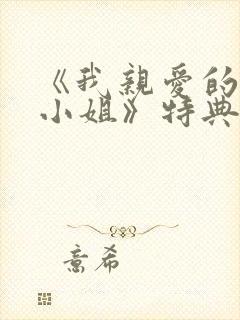 《我親愛的
小姐》特典
意希